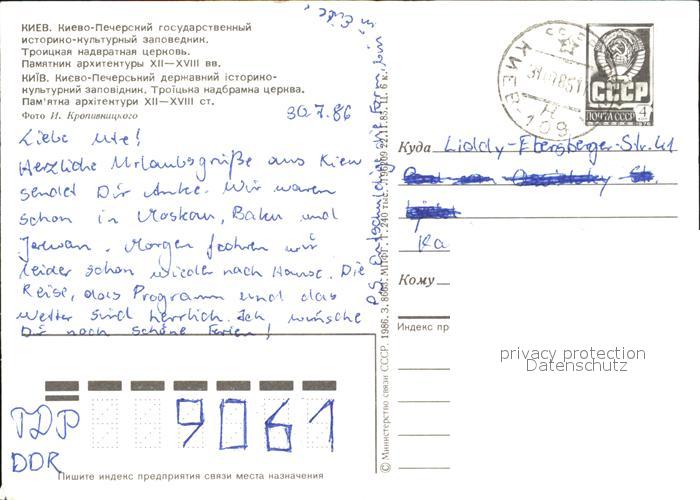 КИЕВ. Киево-Печерский государственный
историко-культурный заповедник.
Троицкая надвратная церковь.
Памятник архитектуры XII—XVIII вв.
КИЇВ. Києво-Печерський державний історико-
культурний заповідник. Троїцька надбрамна церква.
Пам'ятка архітектури XII—XVIII ст.
Фото И. Кропивницкого
30.7.86
Liebe Ute!
Herzliche Urlaubsgrüße aus Kiew
sendet Dir Anke. Wir waren
schon in Moskau, Baku und
Jerwan. Morgen fahren wir
leider schon wieder nach Hause. Die
Reise, das Programm und das
Wetter sind herrlich. Ich wünsche
Dir noch schöne Ferien!
P.S.
in Eile
© Министерство связи СССР. 1986.
КИЕВ-109
СССР
ПОЧТА СССР
4
Куда Liddy-Ebersberger-Str. 41
Ka
Кому
Индекс пр
privacy protection
Datenschutz
ГДР
DDR
9061
Пишите индекс предприятия связи места назначения